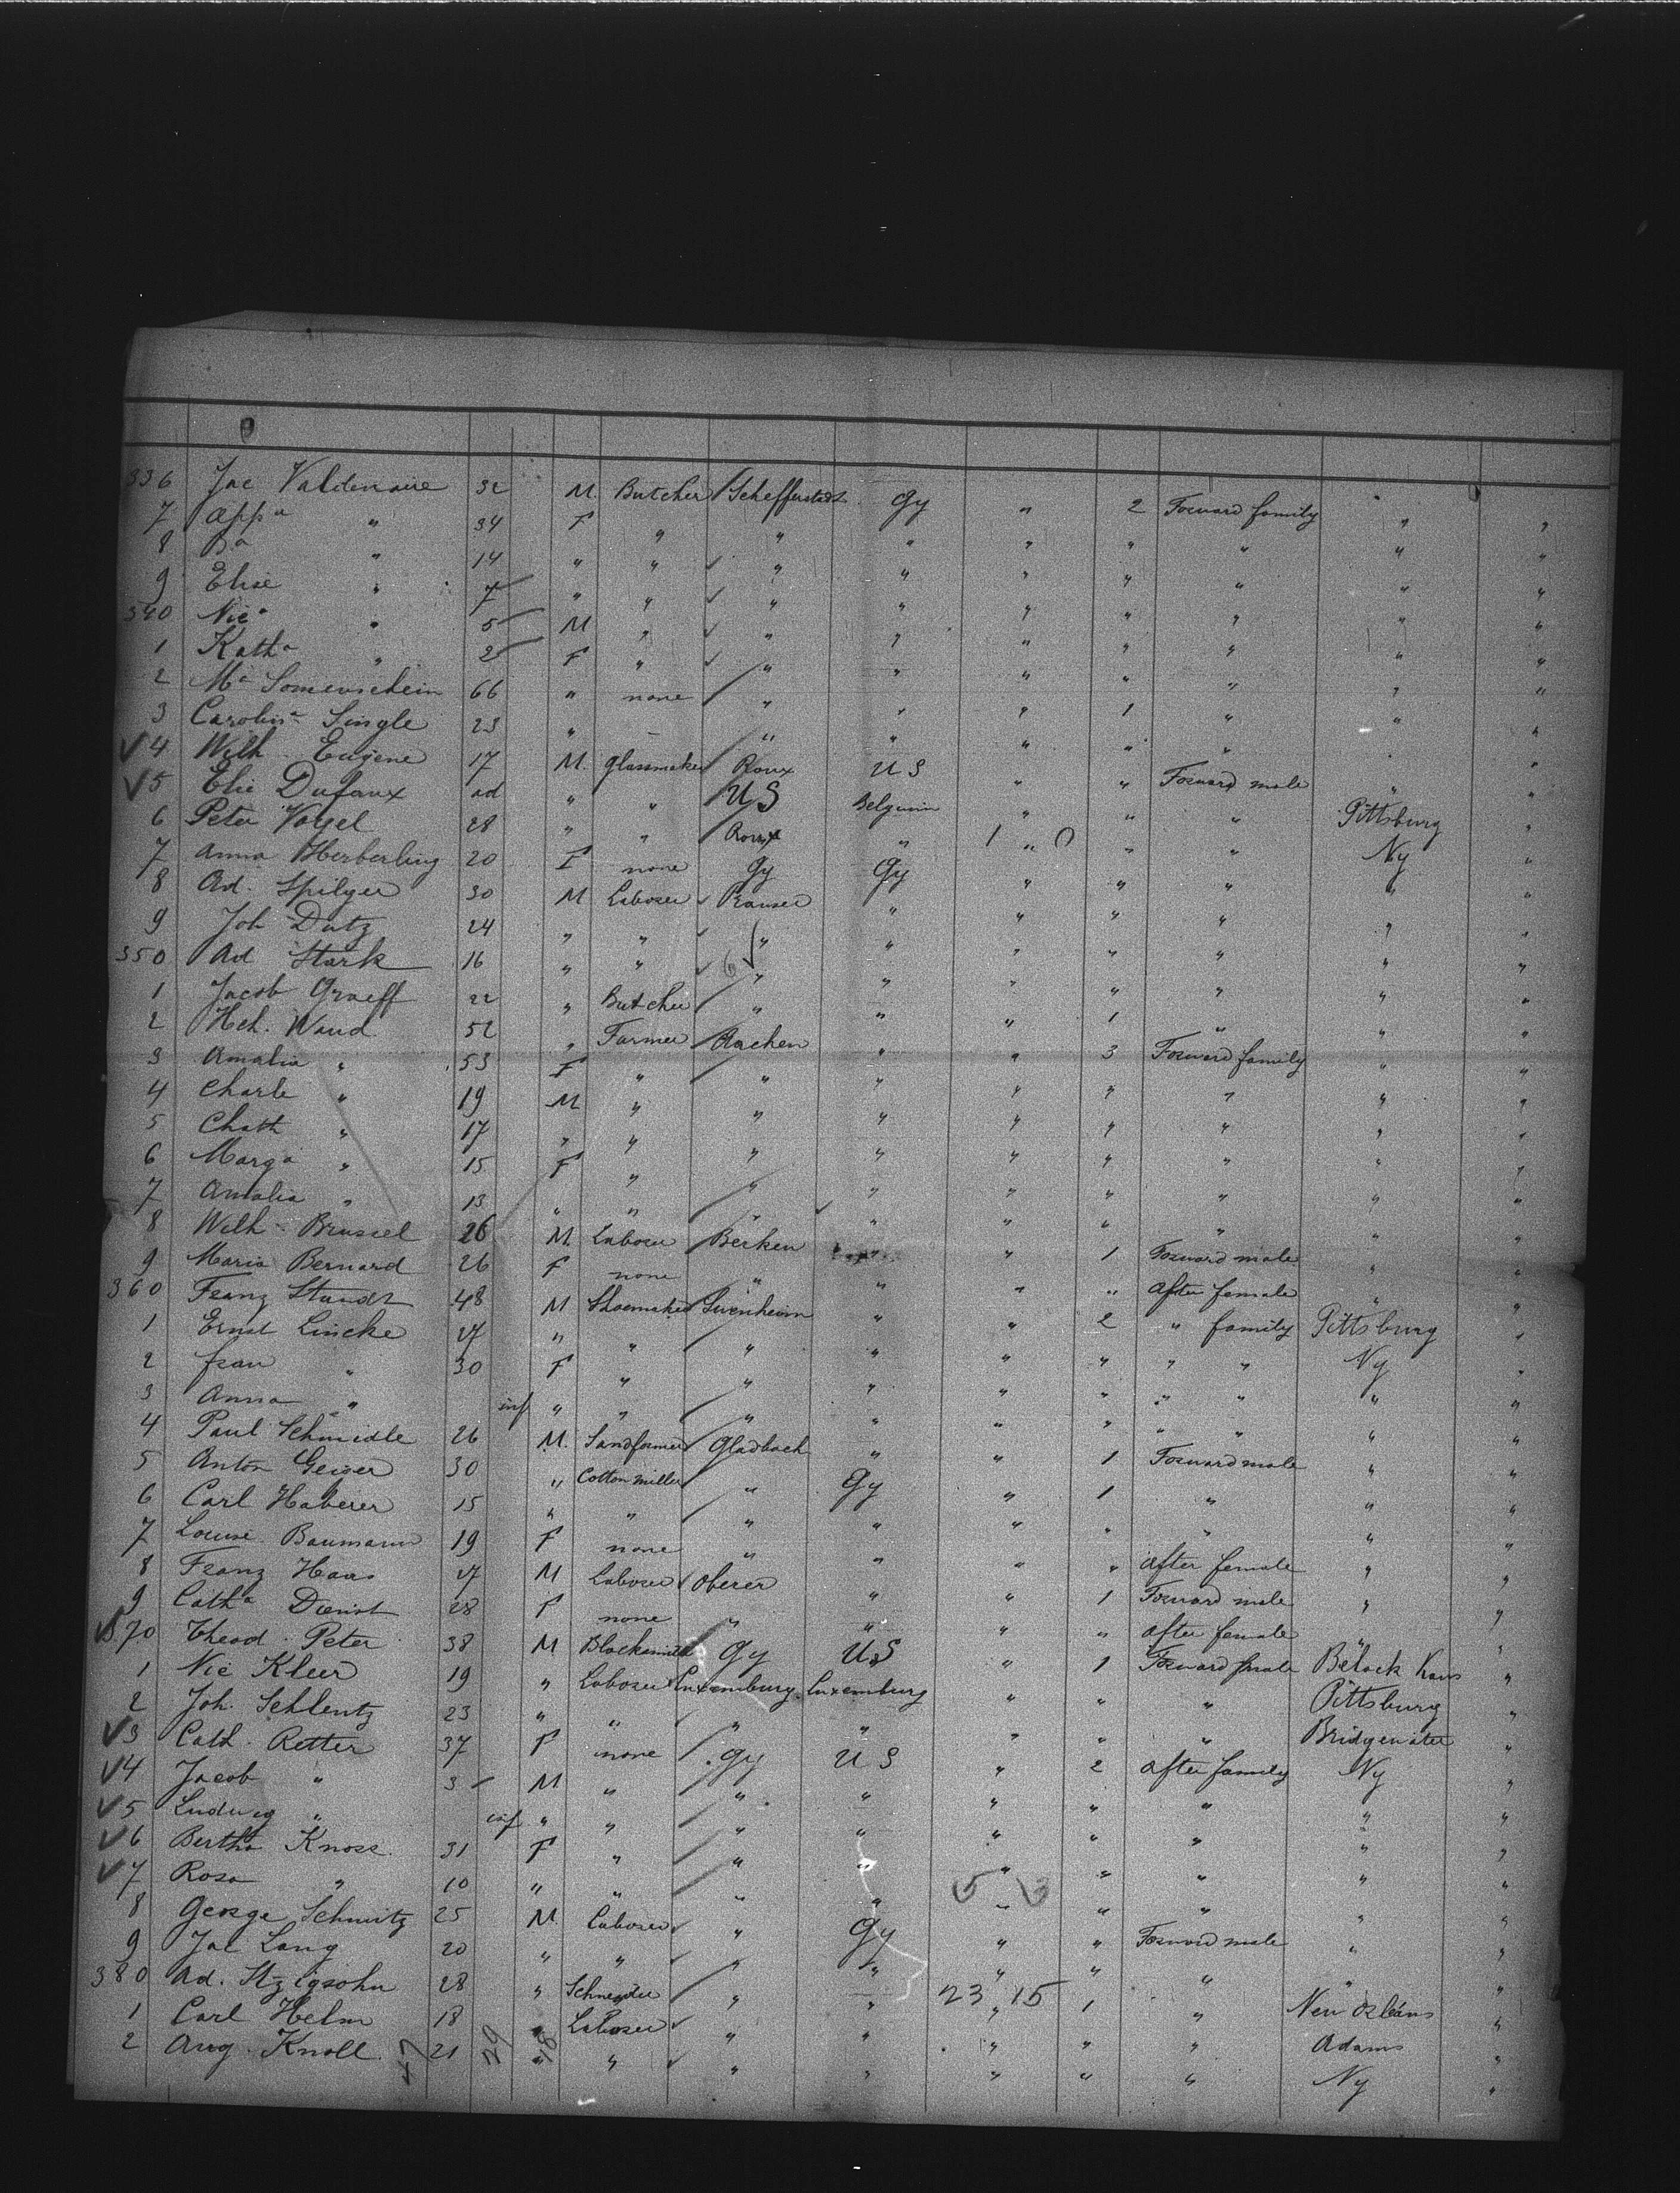 336 Jac Valdenaire 32 M. Butcher Schefferstadt Gy " 2 Forward family " "
7 App a " 34 F " " " " " " " "
8 Ba " 14 " " " " " " " " "
9 Elise " 7 " " " " " " " " "
340 Nic a " 5 M " " " " " " " "
1 Kath a " 2 F " " " " " " " "
2 Ma Sonnenschein 66 " none " " " 1 " " "
3 Carolin a Single 23 " – " " " " " " "
4 Wilh. Eugene 17 M. Glassmaker Roux U S " " Forward male " "
5 Elie Dufaux ad " " U S Belgium " " " Pittsburg "
6 Peter Vogel 28 " " Roux " 1 " 0 " " Ny "
7 Anna Herberling 20 F none Gy Gy " " " " "
8 Ad. Spilger 30 M Laborer " " " " " "
9 Joh Dutz 24 " " " " " " " " "
350 Ad Stark 16 " " 6 " " " " " " "
1 Jacob Graeff 22 " Butcher " " " 1 " " "
2 Hch. Wand 52 " Farmer Aachen " " 3 Forward family " "
3 Amalia " 53 F " " " " " " " "
4 Charle " 19 M " " " " " " " "
5 Chath " 17 " " " " " " " " "
6 Marg a " 15 F " " " " " " " "
7 Amalia " 13 " " " " " " " " "
8 Wilh Brussel 26 M. Laborer Berken " " 1 Forward male " "
9 Maria Bernard 26 F none " " " " After female " "
360 Franz Staudt 48 M Shoemaker " " 2 " family Pittsburg "
1 Ernst Lincke 27 " " " " " " " " Ny "
2 frau " 30 F " " " " " " " " "
3 Anna " inf " " " " " " " " " "
4 Paul Schmidle 26 M. Gladbach " " 1 Forward male " "
5 Anton Geiger 30 " Cotton miller " Gy " 1 " " "
6 Carl Haberer 15 " " " " " " " " "
7 Louise Baumann 19 F none " " " " After female " "
8 Franz Haas 27 M Laborer Oberer " " 1 Forward male " "
9 Cath a Dienst 28 F none " " " " After female " "
370 Theod. Peter 38 M Blacksmith Gy U S " 1 Forward male "
1 Nic Kleer 19 " Laborer Luxemburg Luxemburg " " " Pittsburg "
2 Joh. Schlentz 23 " " " " " " " Bridgewater "
3 Cath. Retter 37 F none Gy U S " 2 After family Ny "
4 Jacob " 3 M " " " " " " " "
5 Ludwig " inf " " " " " " " " "
6 Bertha Knoss 31 F " " " " " " " "
7 Rosa " 10 " " " " 5 " 3 " " " "
8 George Schmitz 25 M. Laborer " Gy " " Forward male " "
9 Jac Lang 20 " " " " " " " " "
380 Ad. Itzigsohn 28 " Schneider " " 23 " 15 1 " New Orleans "
1 Carl Helm 18 " Laborer " " " " " Adams "
2 Aug. Knoll 21 " " " " " " " Ny "
47 29 18